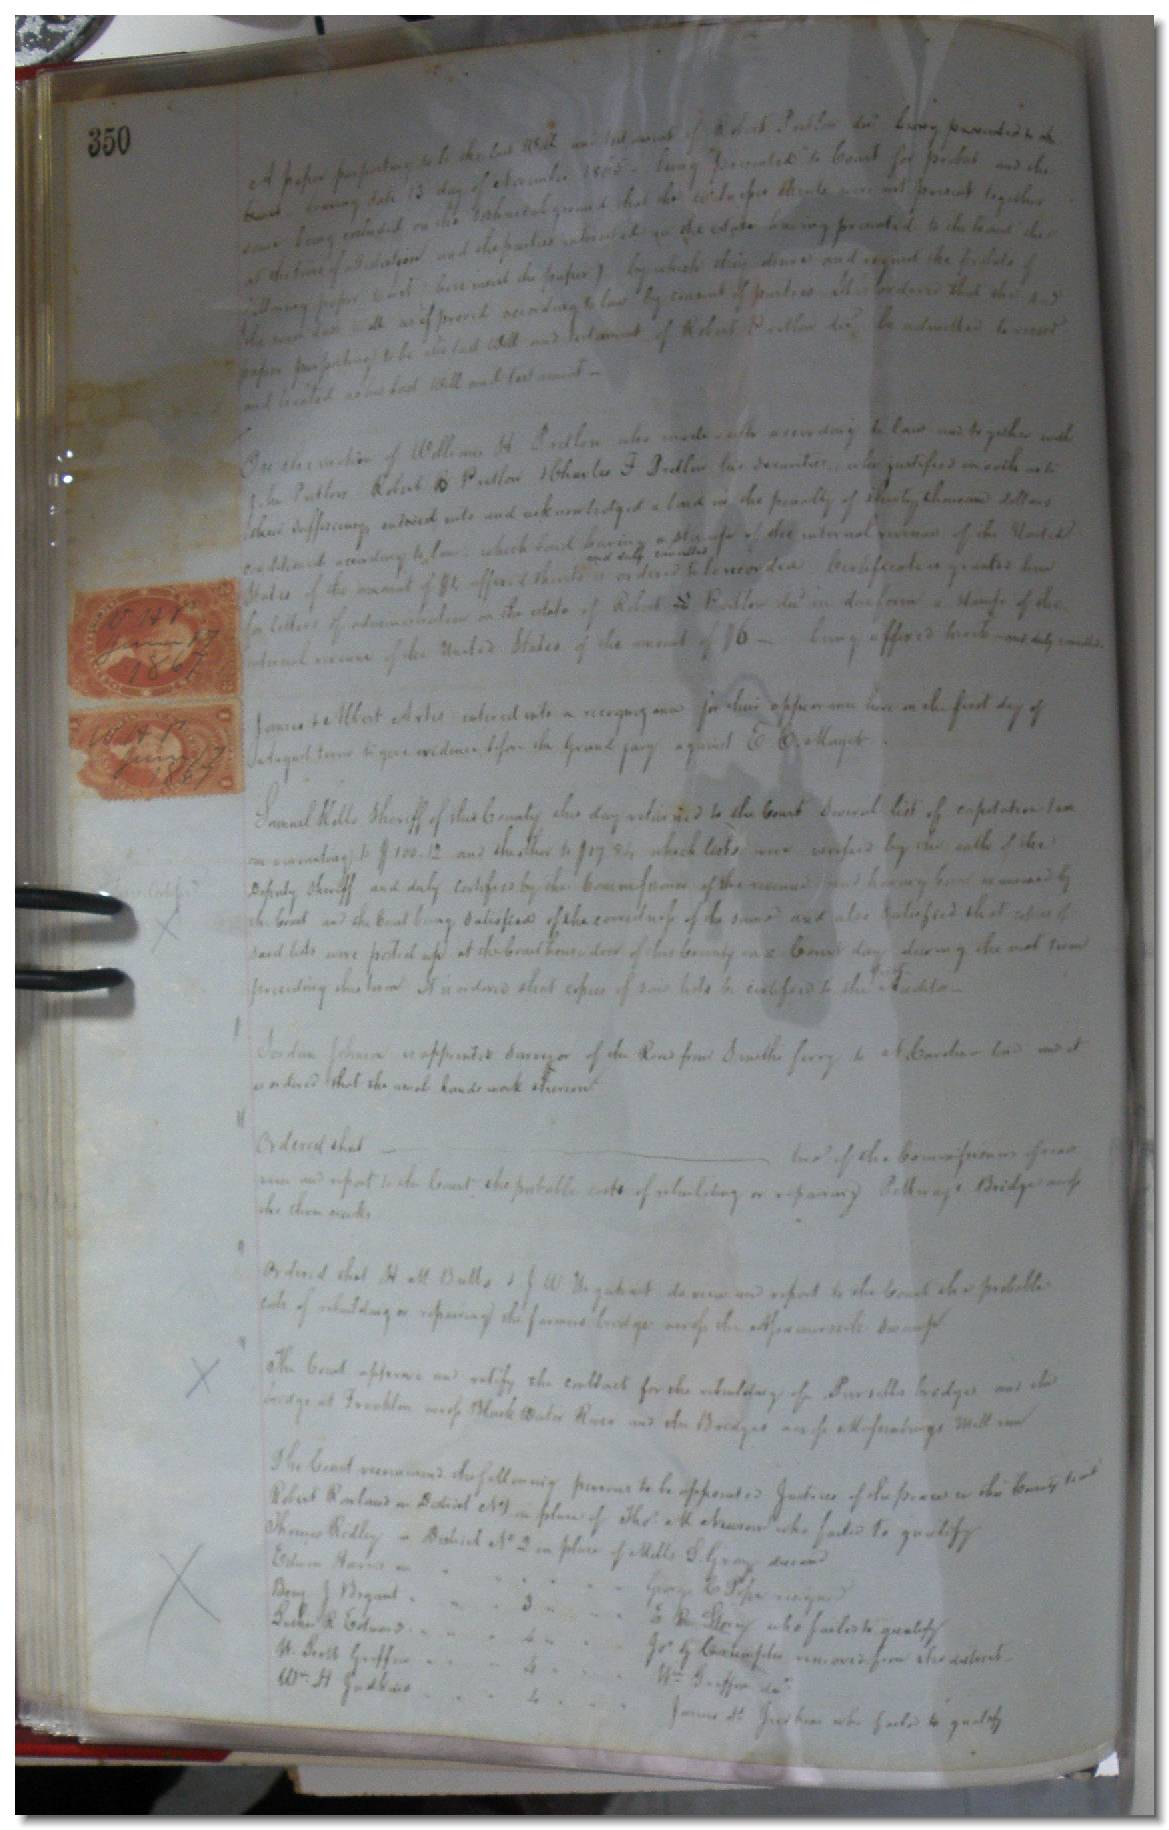 350
A paper purporting to be the last Will and testament of Robert Pretlow decd being presented to the
bearing date 13 day of November 1865 - being presented to Court for probat and the
same being excluded on the technical ground that the witnesses thereto were not present together
at the time of attestation and the parties interested in the estate having presented to the Court the
following paper to wit (here insert the paper) by which they desire and request the Probate of
the same as if proved according to law by consent of parties It is ordered that the said
paper purporting to be the last Will and testament of Robert Pretlow decd be admitted to record
and treated as his last Will and testament -
On the motion of William H. Pretlow who made oath according to law and together with
John Pretlow Robert Pretlow & Charles F Pretlow his securities, who justified on oath as to
their sufficiency entered into and acknowledged a bond in the penalty of thousand dollars
conditioned according to law, which bond having a stamp of the internal revenue of the United
States of the amount of $1 affixed thereto and duly cancelled is ordered to be recorded Certificate is granted him
for letters of administration on the estate of Robert Pretlow decd in due form a stamp of the
internal revenue of the United States of the amount of $6 - being affixed hereto and duly cancelled.
W H P
June 17
1867
W H P
June 17
1867
James & Albert Artis entered into a recognizance for their appearance here on the first day of
August term to give evidence before the Grand jury against E C Maget.
Samuel Kello Sheriff of this County this day returned to the Court several list of capitation tax
one amounting to $100.12 and the other to which lists were verified by the oath of the
Deputy Sheriff and duly certified by the Commissioner of the revenue and having been examined by
the Court and the Court being satisfied of the correctness of the same and also satisfied that copies of
said lists were posted up at the Courthouse door of this County on a Court day during the next term
preceeding this term It is ordered that copies of said lists be certified to the first Auditor -
Jordan Johnson is appointed Surveyor of the Road from Smiths ferry to N Carolina line and it
is ordered that the usual hands work thereon
Ordered that two of the Commissioners of
view and report to the Court the probable costs of rebuilding or repairing Bridge across
the
Ordered that H M Butts & J W Urquhart do view and report to the Court the probable
costs of rebuilding or repairing the farmers bridge across the Assamoosick Swamp
The Court approve and ratify the contract for the rebuilding of bridges and the
bridge at Franklin across Black Water River and the Bridges across Mill run
The Court recommend the following persons to be appointed Justices of the peace in this County to wit
Robert Rowland in District No 1 in place of Thos M Newsom who failed to qualify
Thomas Ridley in District No 2 in place of Mills S. Gray decased
Edwin Harris in " " " " " " George E Pope resigned
Benj J Bryant " " " 3 " " " E R Story who failed to qualify
R Edwards " " " 4 " " " Jos G removed from the district -
W. Scott Griffin " " " 4 " " " Wm Griffin decd
Wm H Judkins " " " 4 " " " James D. Judkins who failed to qualify